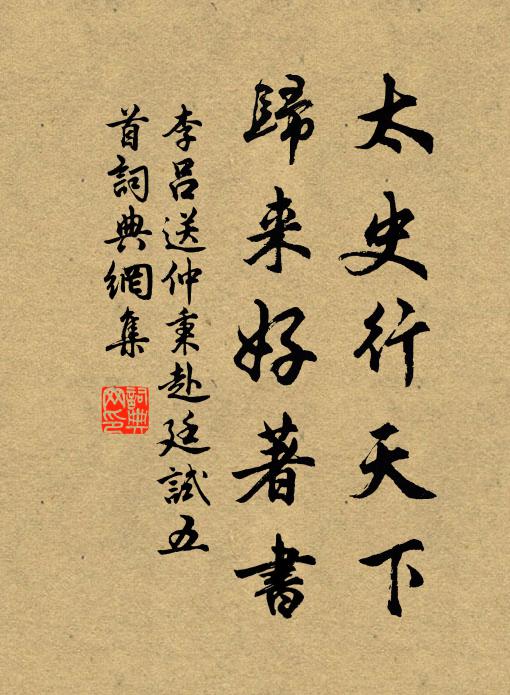 太史行天下
歸来好著書
李吕送仲秉赴廷試五
首詞典網集
詞典